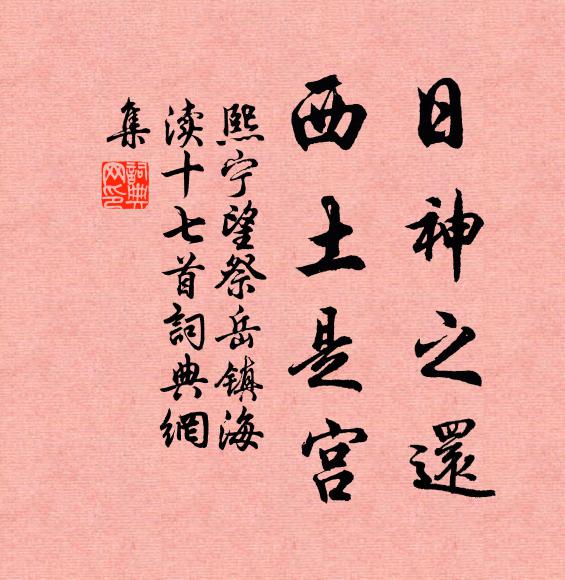 日神之還
西土是宫
熙宁望祭岳镇海
渎十七首詞典網
集
詞典网印